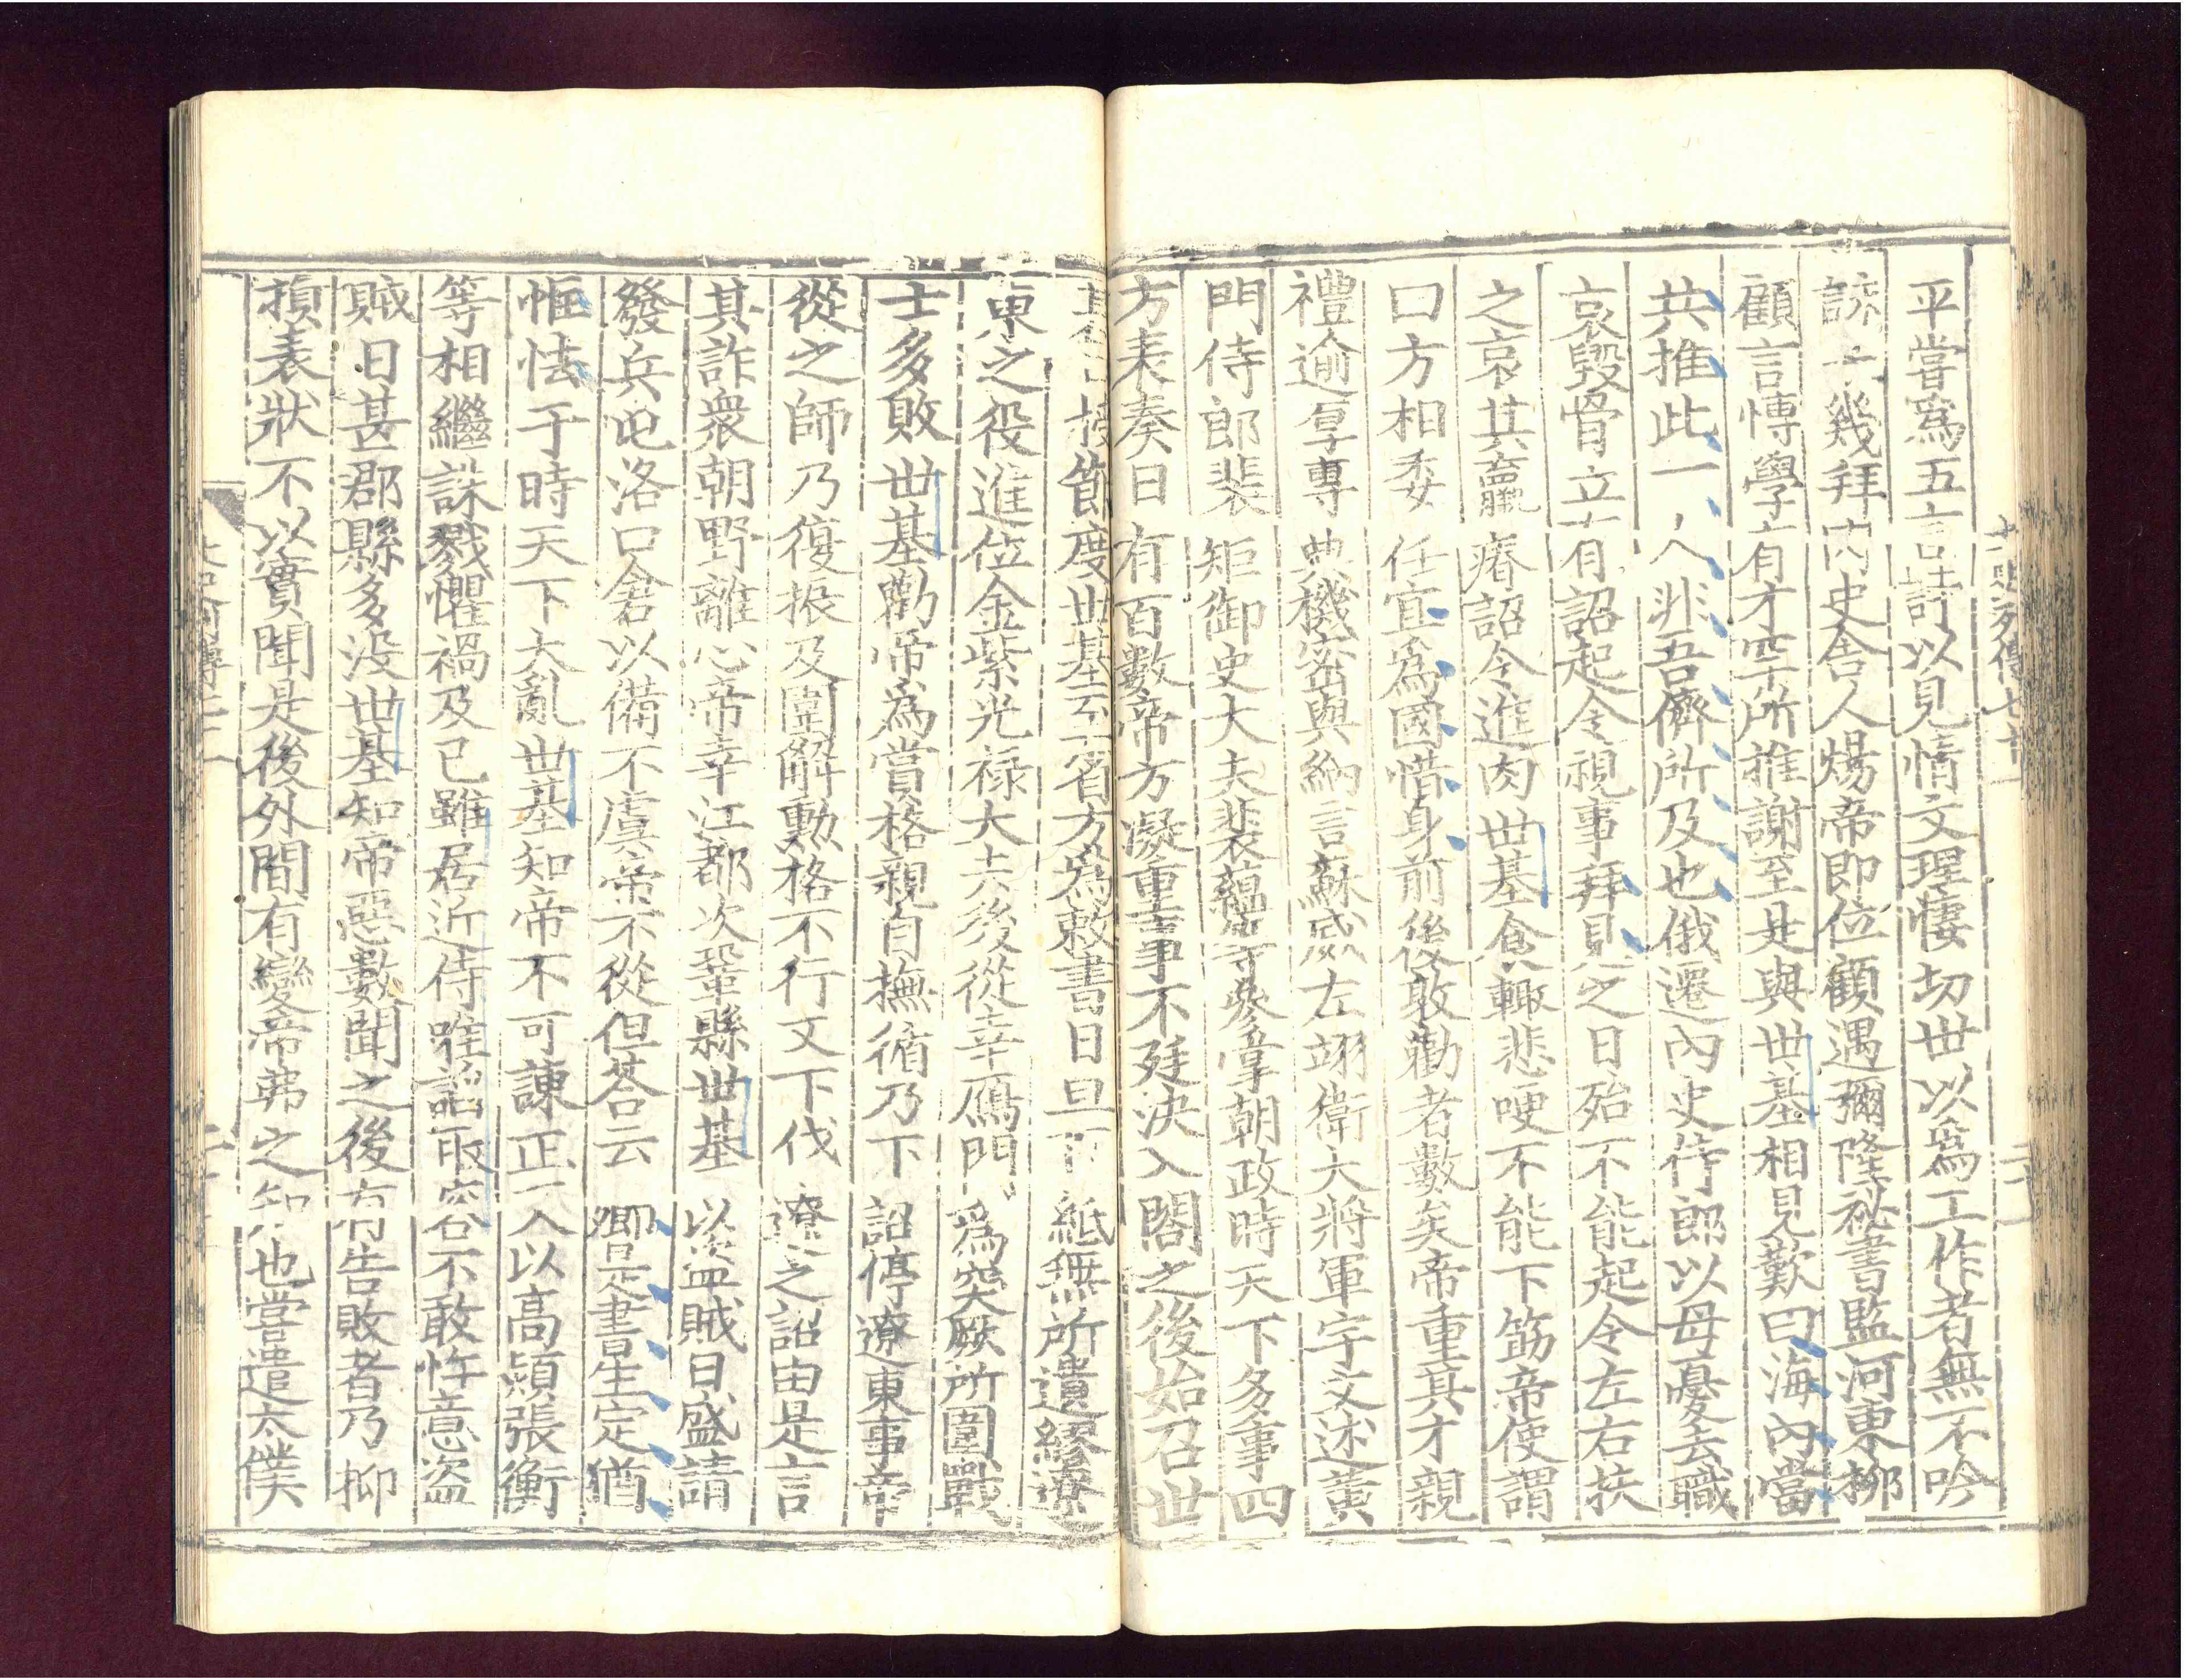 平嘗爲五言詩以見情文理悽切世以爲工作者無不吟
詠未幾拜內史舍人煬帝即位顧遇彌隆祕書監河東柳
顧言博學有才罕所推謝至是與世基相見歎曰海內當
共推此一人非吾儕所及也俄遷內史侍郎以母憂去職
哀毀骨立有詔起令視事拜見之日殆不能起令左右扶
之哀其羸瘠詔令進肉世基食輒悲哽不能下筯帝使謂
曰方相委任宜爲國惜身前後敦勸者數矣帝重其才親
禮逾厚專典機密與納言蘇威左翊衛大將軍宇文述黃
門侍郎裴矩御史大夫裴蘊等參掌朝政時天下多事四
方表奏日有百數帝方凝重事不廷決入閣之後始召世
基口授節度世基至省方爲敕書日且百紙無所遺繆遼
東之役進位金紫光祿大夫後從幸鴈門爲突厥所圍戰
士多敗世基勸帝爲賞格親自撫循乃下詔停遼東事帝
從之師乃復振及圍解勳格不行又下伐遼之詔由是言
其詐衆朝野離心帝幸江都次鞏縣世基以盜賊日盛請
發兵屯洛口倉以備不虞帝不從但荅云卿是書生定猶
恇怯于時天下大亂世基知帝不可諫正又以高熲張衡
等相繼誅戮懼禍及已雖居近侍唯諂取容不敢忤意盗
賊日甚郡縣多没世基知帝惡數聞之後有告敗者乃抑
損表狀不以實聞是後外間有變帝弗之知也嘗遣太僕